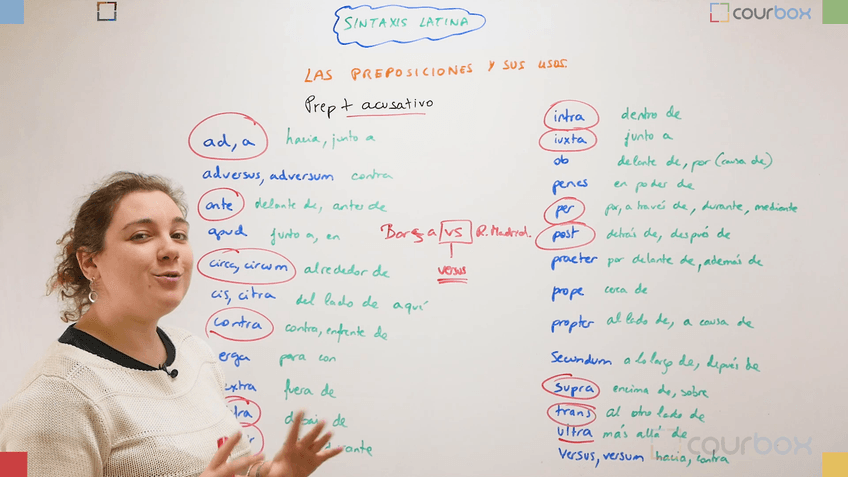 SINTAXIS LATINA
courbox
LAS PREPOSICIONES Y SUS USOS.
Prep + acusativo
ad, a hacia, junto a
adversus, adversum contra
ante delante de, antes de
apud junto a, en
circa, circum alrededor de
cis, citra del lado de aquí
contra contra, enfrente de
erga para con
extra fuera de
Barça vs R. Madrid.
versus
intra dentro de
iuxta junto a
ob delante de, por (causa de)
penes en poder de
per por, a través de, durante, mediante
post detrás de, después de
praeter por delante de, además de
prope cerca de
propter al lado de, a causa de
Secundum a lo largo de, después de
supra encima de, sobre
trans al otro lado de
ultra más allá de
Versus, versum hacia, contra
courbox